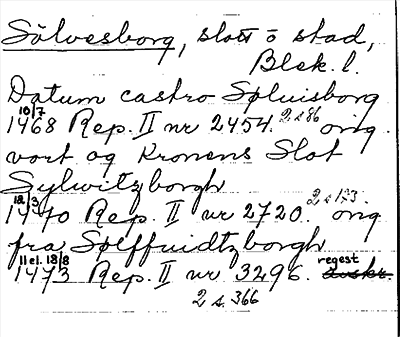 Sölvesborg, slott o stad,
Blek. l.
Datum castro Søluisborg
10/7
1468 Rep. II nr 2454. 2 s 86 orig.
vort og Kronens Slot
Sylwitzborgh
12/3
1470 Rep. II nr 2720. 2 s 123. orig
fra Søeffuidtzborgh
11 el. 18/8
1473 Rep. II nr 3296. regest avskr.
2 s. 366